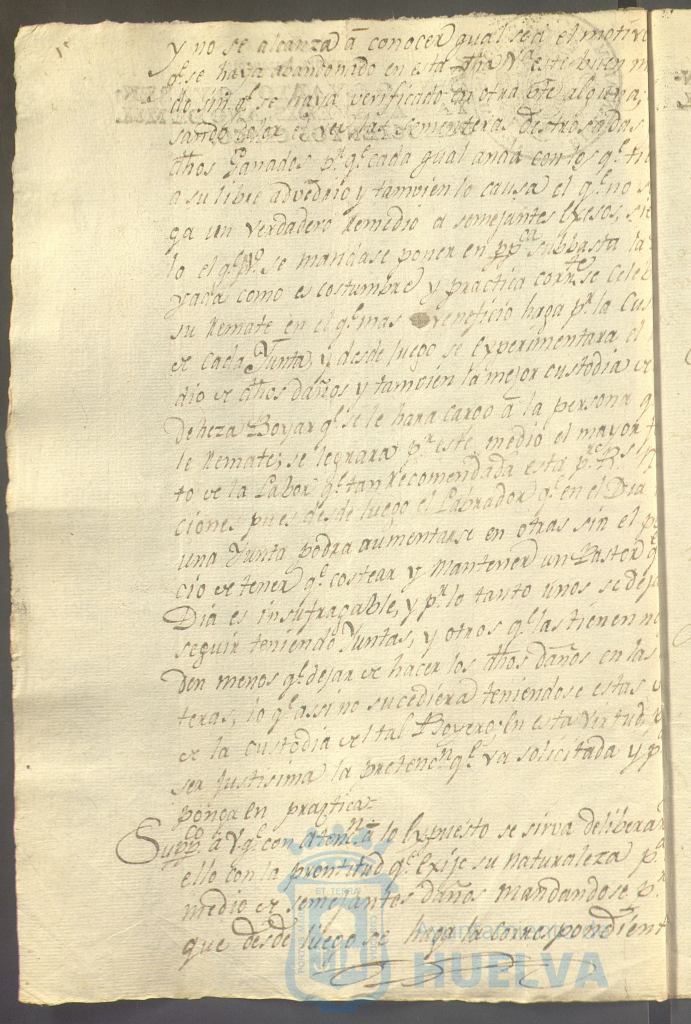 y no se alcanza â conocer qual sea el motivo
qe. se haya abandonado en esta dha Va. este bien
de sin qe. se haya verificado en otra pte alguna,
sando dolor el ver las sementeras destrosadas
dhos Ganados pr. qe. cada qual anda con los qe.
a su libre advedrio y tamvien lo causa el qe. no
ga un verdadero Remedio a semejantes exesos,
lo el qe. se mandase poner en ppca. subbasta la
yada como es costumbre y practica corrte. se
su Remate en el qe. mas veneficio haga pr. la
de cada Yunta, y desde luego se experimentara el
dio de dhos daños y tamvien la mejor custodia de
deheza Boyar qe. se le hara cargo â la persona
le Remate; se lograra pr. este medio el mayor
to de la Labor qe. tan recomendada esta pr.
ciones pues desde luego el Labrador qe. en el Dia
una Yunta podra aumentarse en otras sin el
cio de tener qe. costear y mantener un Pastor qe.
Dia es insufragable, y pr. lo tanto unos se
seguir teniendo Yuntas, y otros qe. las tienen no
den menos qe. dejar de hacer los dhos daños en las
teras, lo qe. assi no sucediera teniendose estas
de la custodia del tal Boyero; En esta virtud,
ser justisima la pretencn. qe. va solicitada y
ponga en practica=
Suppco. â V. qe. con atencn. â lo expuesto se sirva
ello con la prontitud qe. exije su naturaleza
medio de semejantes daños mandandose pr.
que desde luego se haga la correspondient
HUELVA